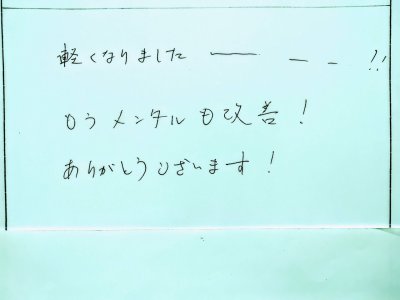 軽くなりました ー ー ー !!
もうメンタルも改善!
ありがとうございます!